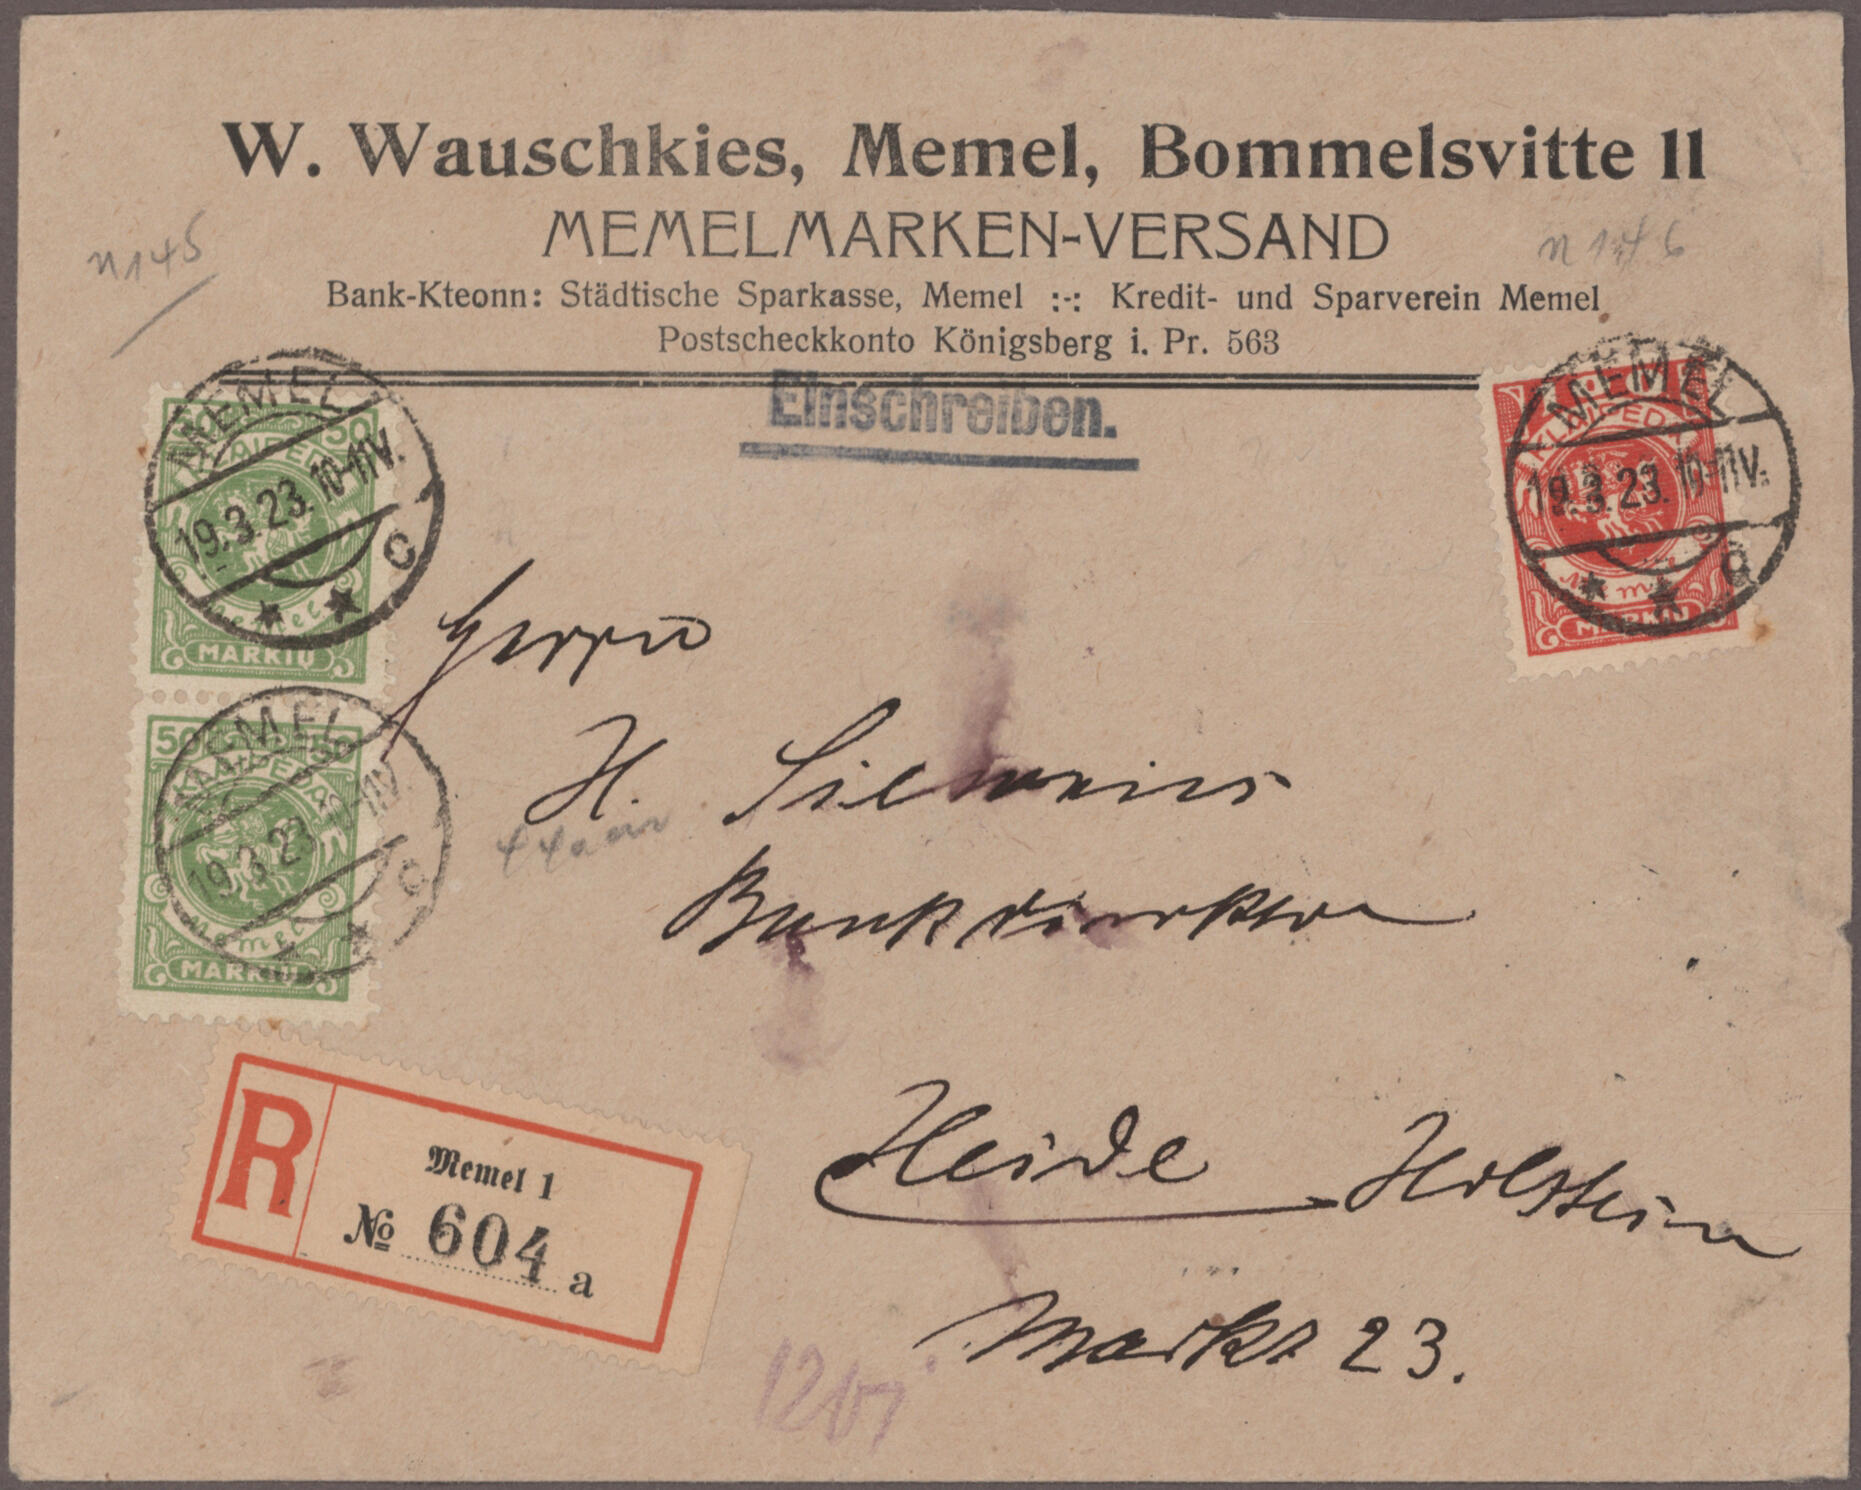 W. Wauschkies, Memel, Bommelsvitte 11
MEMELMARKEN-VERSAND
Bank-Kteonn: Städtische Sparkasse, Memel :-: Kredit- und Sparverein Memel
Postscheckkonto Königsberg i. Pr. 563
n 145
n 146
Einschreiben.
MEMEL
19.3.23. 10-11V.
c
50 50
KLAIPEDA
Memel
MARKIŲ
MEMEL
19.3.23. 10-11V.
c
50 50
KLAIPEDA
Memel
MARKIŲ
MEMEL
19.3.23. 10-11V.
KLAIPEDA
Memel
MARKIŲ
Herrn
H.
Bankdirektor
Heide Holstein
Markt 23.
R
Memel 1
№ 604 a